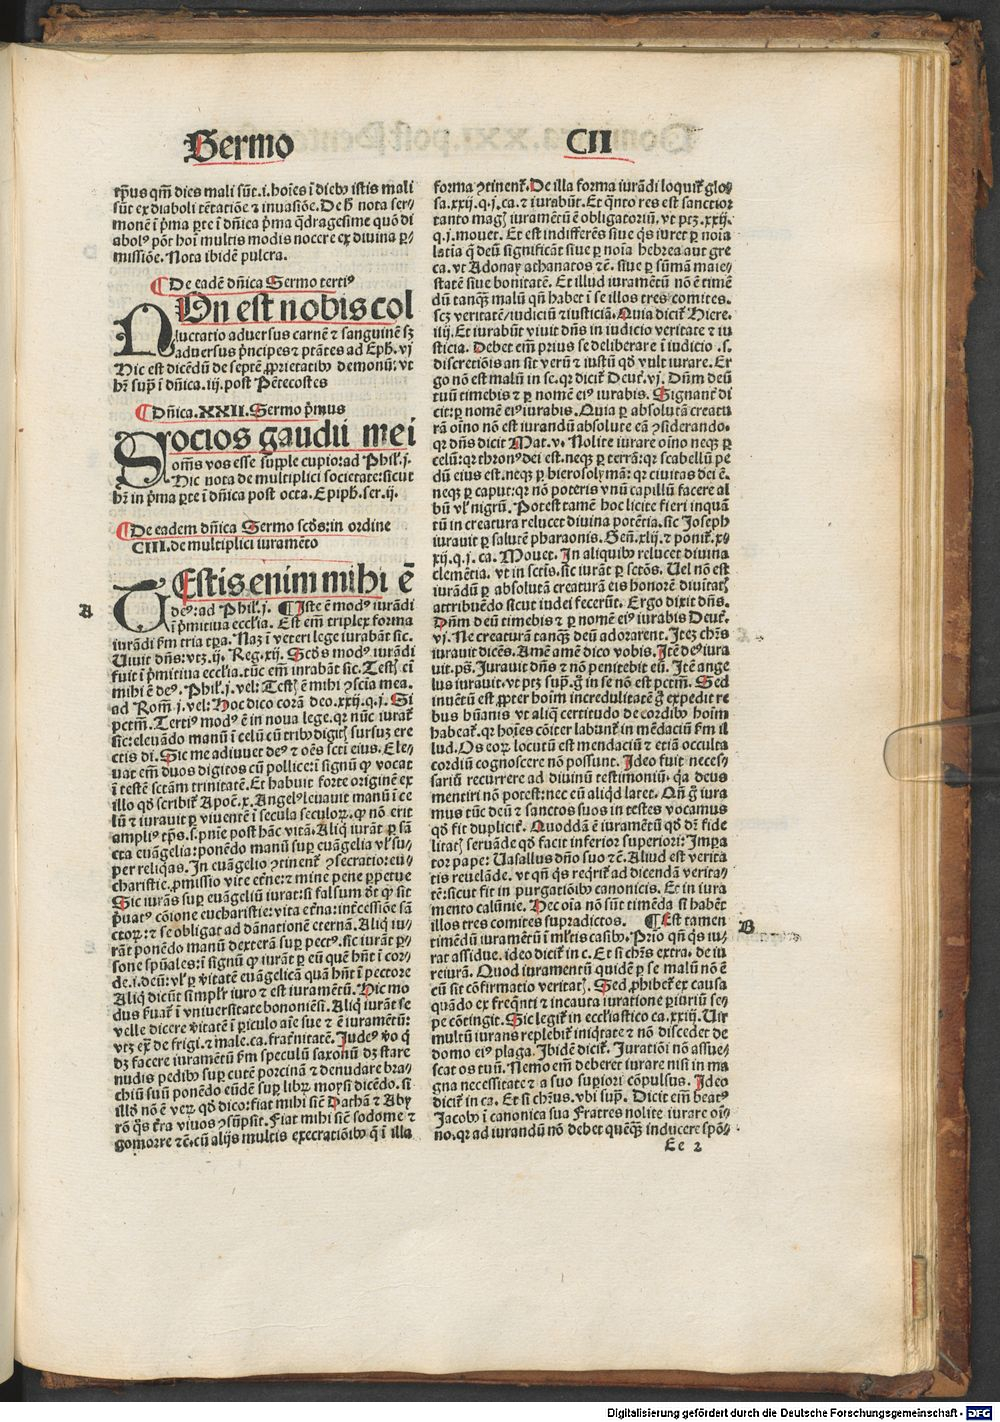 Sermo CII
tp̄us qm̄ dies mali sūt.i.hoīes ī dieb₉ istis mali
sūt ex diaboli tētatiōe ⁊ inuasiōe. De h̄ nota ser⸗
monē ī p̄ma p̲te ī dn̄ica p̄ma q̄dragesime quō di
abol⁹ pōt hoī multis modis nocere ex diuina p̲⸗
missiōe. Nota ibidē pulcra.
¶ De eadē dn̄ica Sermo terti⁹
NOn est nobis col
luctatio aduersus carnē ⁊ sanguinē sꝫ
aduersus p̄ncipes ⁊ ptātes ad Eph̄. vj
Hic est dicēdū de septē ꝓprietatib₉ demonū: vt
hr̄ sup̄ ī dn̄ica .iij. post Pētecostes
¶ Dn̄ica .XXII. Sermo p̄mus
SOcios gaudii mei
om̄s vos esse supple cupio: ad Phil̄.j.
Hic nota de multiplici societate: sicut
hr̄ in p̄ma p̲te ī dn̄ica post octa. Epiph̄. ser. ij.
¶ De eadem dn̄ica Sermo scd̄s: in ordine
CIII. de multiplici iuramēto
TEstis enim mihi ē
A
de⁹: ad Phil̄.j. ¶ Iste ē mod⁹ iurādi
ī p̄mitiua eccl̄ia. Est em̄ triplex forma
iurādi fm̄ tria tp̄a. Naꝫ ī veteri lege iurabāt sic.
Uiuit dn̄s: vtꝫ .ij. Reg. xij. Scd̄s mod⁹ iurādi
fuit ī p̄mitiua eccl̄ia. tūc em̄ iurabāt sic. Testꝭ em̄
mihi ē de⁹. Phil̄.j. vel: Testꝭ ē mihi ɔscia mea.
ad Rom̄.j. vel: Hoc dico corā deo. xxij. q.j. Si
pctm̄. Terti⁹ mod⁹ ē in noua lege. qꝛ nūc iurat̄
sic: eleuādo manū ī celū cū trib₉ digitꝭ sursuꝫ ere
ctis di. Sic me adiuuet de⁹ ⁊ oēs scti eius. Ele⸗
uat em̄ duos digitos cū pollice: ī signū ꝙ vocat
ī testē sctām trinitatē. Et habuit forte originē ex
illo qd̄ scribit̄ Apoc̄.x. Angel⁹ leuauit manū ī ce
lū ⁊ iurauit p̲ viuentē ī secula seculoꝝ. ꝙ nō erit
ampli⁹ tp̄s. s. pnīe post hāc vitā. Aliq̄ iurāt p̲ sā
cta euāgelia: ponēdo manū sup̲ euāgelia vl̄ su⸗
per reliq̄as. In euāgelio ɔtinent̄ ɔsecratio: eu⸗
charistie. ꝓmissio vite et̄ne: ⁊ mine pene p̲petue
Sic iurās sup̲ euāgeliū iurat: si falsum d̄t ꝙ sit
p̄uat⁹ cōione eucharistie: vita et̄na: int̄cessiōe sā
ctoꝝ: ⁊ se obligat ad dānationē eternā. Aliq̄ iu⸗
rāt ponēdo manū dexterā sup̲ pect⁹. sic iurāt p̲⸗
sone spūales: ī signū ꝙ iurāt p̲ eū quē hn̄t ī cor⸗
de. i. deū: vl̄ p̲ v̄itatē euāgelicā quā hn̄t ī pectore
Aliq̄ dicūt simpl̄r iuro ⁊ est iuramētū. Hic mo
dus ƀuat̄ ī vniuersitate bononiēsi. Aliq̄ iurāt se
velle dicere v̄itatē ī p̲iculo aīe sue ⁊ ē iuramētū:
vtꝫ ex̄ de frigi. ⁊ male. ca. frat̄nitatē. Jude⁹ v̄o q̄
dꝫ facere iuramētū fm̄ speculū saxonū dꝫ stare
nudis pedib₉ sup̲ cutē porcinā ⁊ denudare bra⸗
chiū suū ponēdo eūdē sup̲ libꝝ moysi dicēdo. si
illd̄ nō ē veꝝ qd̄ dico: fiat mihi sic̄ Dathā ⁊ Aby
rō q̄s t̄ra viuos ɔsūpsit. Fiat mihi sic̄ sodome ⁊
gomorre ⁊c̄. cū alijs multis execratiōib₉ q̄ ī illa
forma ɔtinent̄. De illa forma iurādi loquit̄ glo⸗
sa. xxij. q.j. ca. ⁊ iurabūt. Et q̄nto res est sanctior
tanto magꝭ iuramētū ē obligatoriū. vt ptꝫ. xxij.
q.j. mouet. Et est indifferēs siue q̄s iuret p̲ noīa
latīa q̄ deū significāt siue p̲ noīa hebrea aut gre
ca. vt Adonay athanatos ⁊c̄. siue p̲ sūmā maie⸗
statē siue bonitatē. Et illud iuramētū nō ē timē
dū tanqꝫ malū qn̄ habet ī se illos tres comites.
scꝫ veritatē/iudiciū ⁊ iusticiā. Quia dicit̄ Hiere.
iiij. Et iurabūt viuit dn̄s in iudicio veritate ⁊ iu
sticia. Debet em̄ prius se deliberare ī iudicio .s.
discretiōis an sit verū ⁊ iustū qd̄ vult iurare. Er
go nō est malū in se. qꝛ dicit̄ Deut̄. vj. Dn̄m deū
tuū timebis ⁊ p̲ nomē ei⁹ iurabis. Signant̄ di
cit: p̲ nomē ei⁹ iurabis. Quia p̲ absolutā creatu
rā oīno nō est iurandū absolute eā ɔsiderando.
qꝛ dn̄s dicit Mat. v. Nolite iurare oīno neqꝫ p̲
celū: qꝛ thron⁹ dei est. neqꝫ p̲ terrā: qꝛ scabellū pe
dū eius est. neqꝫ p̲ hierosolymā: qꝛ ciuitas dei ē.
neqꝫ p̲ caput: qꝛ nō poteris vnū capillū facere al
bū vl̄ nigrū. Potest tamē hoc licite fieri inquā
tū in creatura relucet diuina potētia. sic Joseph
iurauit p̲ salutē pharaonis. Gen̄. xlij. ⁊ ponit̄. xx
xij. q.j. ca. Mouet. In aliquib₉ relucet diuina
clemētia. vt in sctis. sic iurāt p̲ sctōs. Uel nō est
iurādū p̲ absolutā creaturā eis honorē diuitatꝭ
attribuēdo sicut iudei fecerūt. Ergo dixit dn̄s.
Dn̄m deū timebis ⁊ p̲ nomē ei⁹ iurabis Deut̄.
vj. Ne creaturā tanqꝫ deū adorarent. Iteꝫ chr̄s
iurauit dicēs. Amē amē dico vobis. Itē de⁹ iura
uit. ps̄. Jurauit dn̄s ⁊ nō penitebit eū. Itē ange
lus iurauit. vt ptꝫ sup̄. g̊ in se nō est pctm̄. Sed
inuētū est ꝓpter hoīm incredulitatē g̊ expedit re
bus hūanis vt aliq̄ certitudo de cordib₉ hoīm
habeat̄. qꝛ hoīes cōiter labunt̄ in mēdaciū fm̄ il
lud. Os eoꝝ locutū est mendaciū ⁊ etiā occulta
cordiū cognoscere nō possunt. Ideo fuit neces⸗
sariū recurrere ad diuinū testimoniū. q̄a deus
mentiri nō potest: nec eū aliqd̄ latet. Qn̄ g̊ iura
mus tūc deū ⁊ sanctos suos in testes vocamus
qd̄ fit duplicit̄. Quoddā ē iuramētū qd̄ dr̄ fide
litatꝭ seruāde qd̄ facit inferior superiori: Impa
tor pape: Uasallus dn̄o suo ⁊c̄. Aliud est verita
tis reuelāde. vt qn̄ q̄s reqrit̄ ad dicendā verita⸗
tē: sicut fit in purgatiōib₉ canonicis. Et in iura
mento calūnie. Hec oīa nō sūt timēda si habēt
illos tres comites supradictos. ¶ Est tamen
B
timēdū iuramētū ī ml̄tis casib₉. Prīo qn̄ q̄s iu⸗
rat assidue. ideo dicit̄ in c. Et si chr̄s extra. de iu
reiurā. Quod iuramentū quidē p̲ se malū nō ē
cū sit cōfirmatio veritatꝭ. Sed ꝓhibet̄ ex causa
quādo ex freq̄nti ⁊ incauta iuratione p̲iuriū se⸗
pe cōtingit. Sic legit̄ in eccl̄iastico ca. xxiij. Uir
multū iurans replebit̄ iniq̄tate ⁊ nō discedet de
domo ei⁹ plaga. Ibidē dicit̄. Juratiōi nō assue⸗
scat os tuū. Nemo em̄ deberet iurare nisi in ma
gna necessitate ⁊ a suo superiori cōpulsus. Ideo
dicit̄ in ca. Et si chr̄us. vbi sup̲̄. Dicit em̄ beat⁹
Jacob₉ ī canonica sua Fratres nolite iurare oī⸗
no. qꝛ ad iurandū nō debet quēqꝫ inducere spō⸗
Ee 2
Digitalisierung gefördert durch die Deutsche Forschungsgemeinschaft - DFG